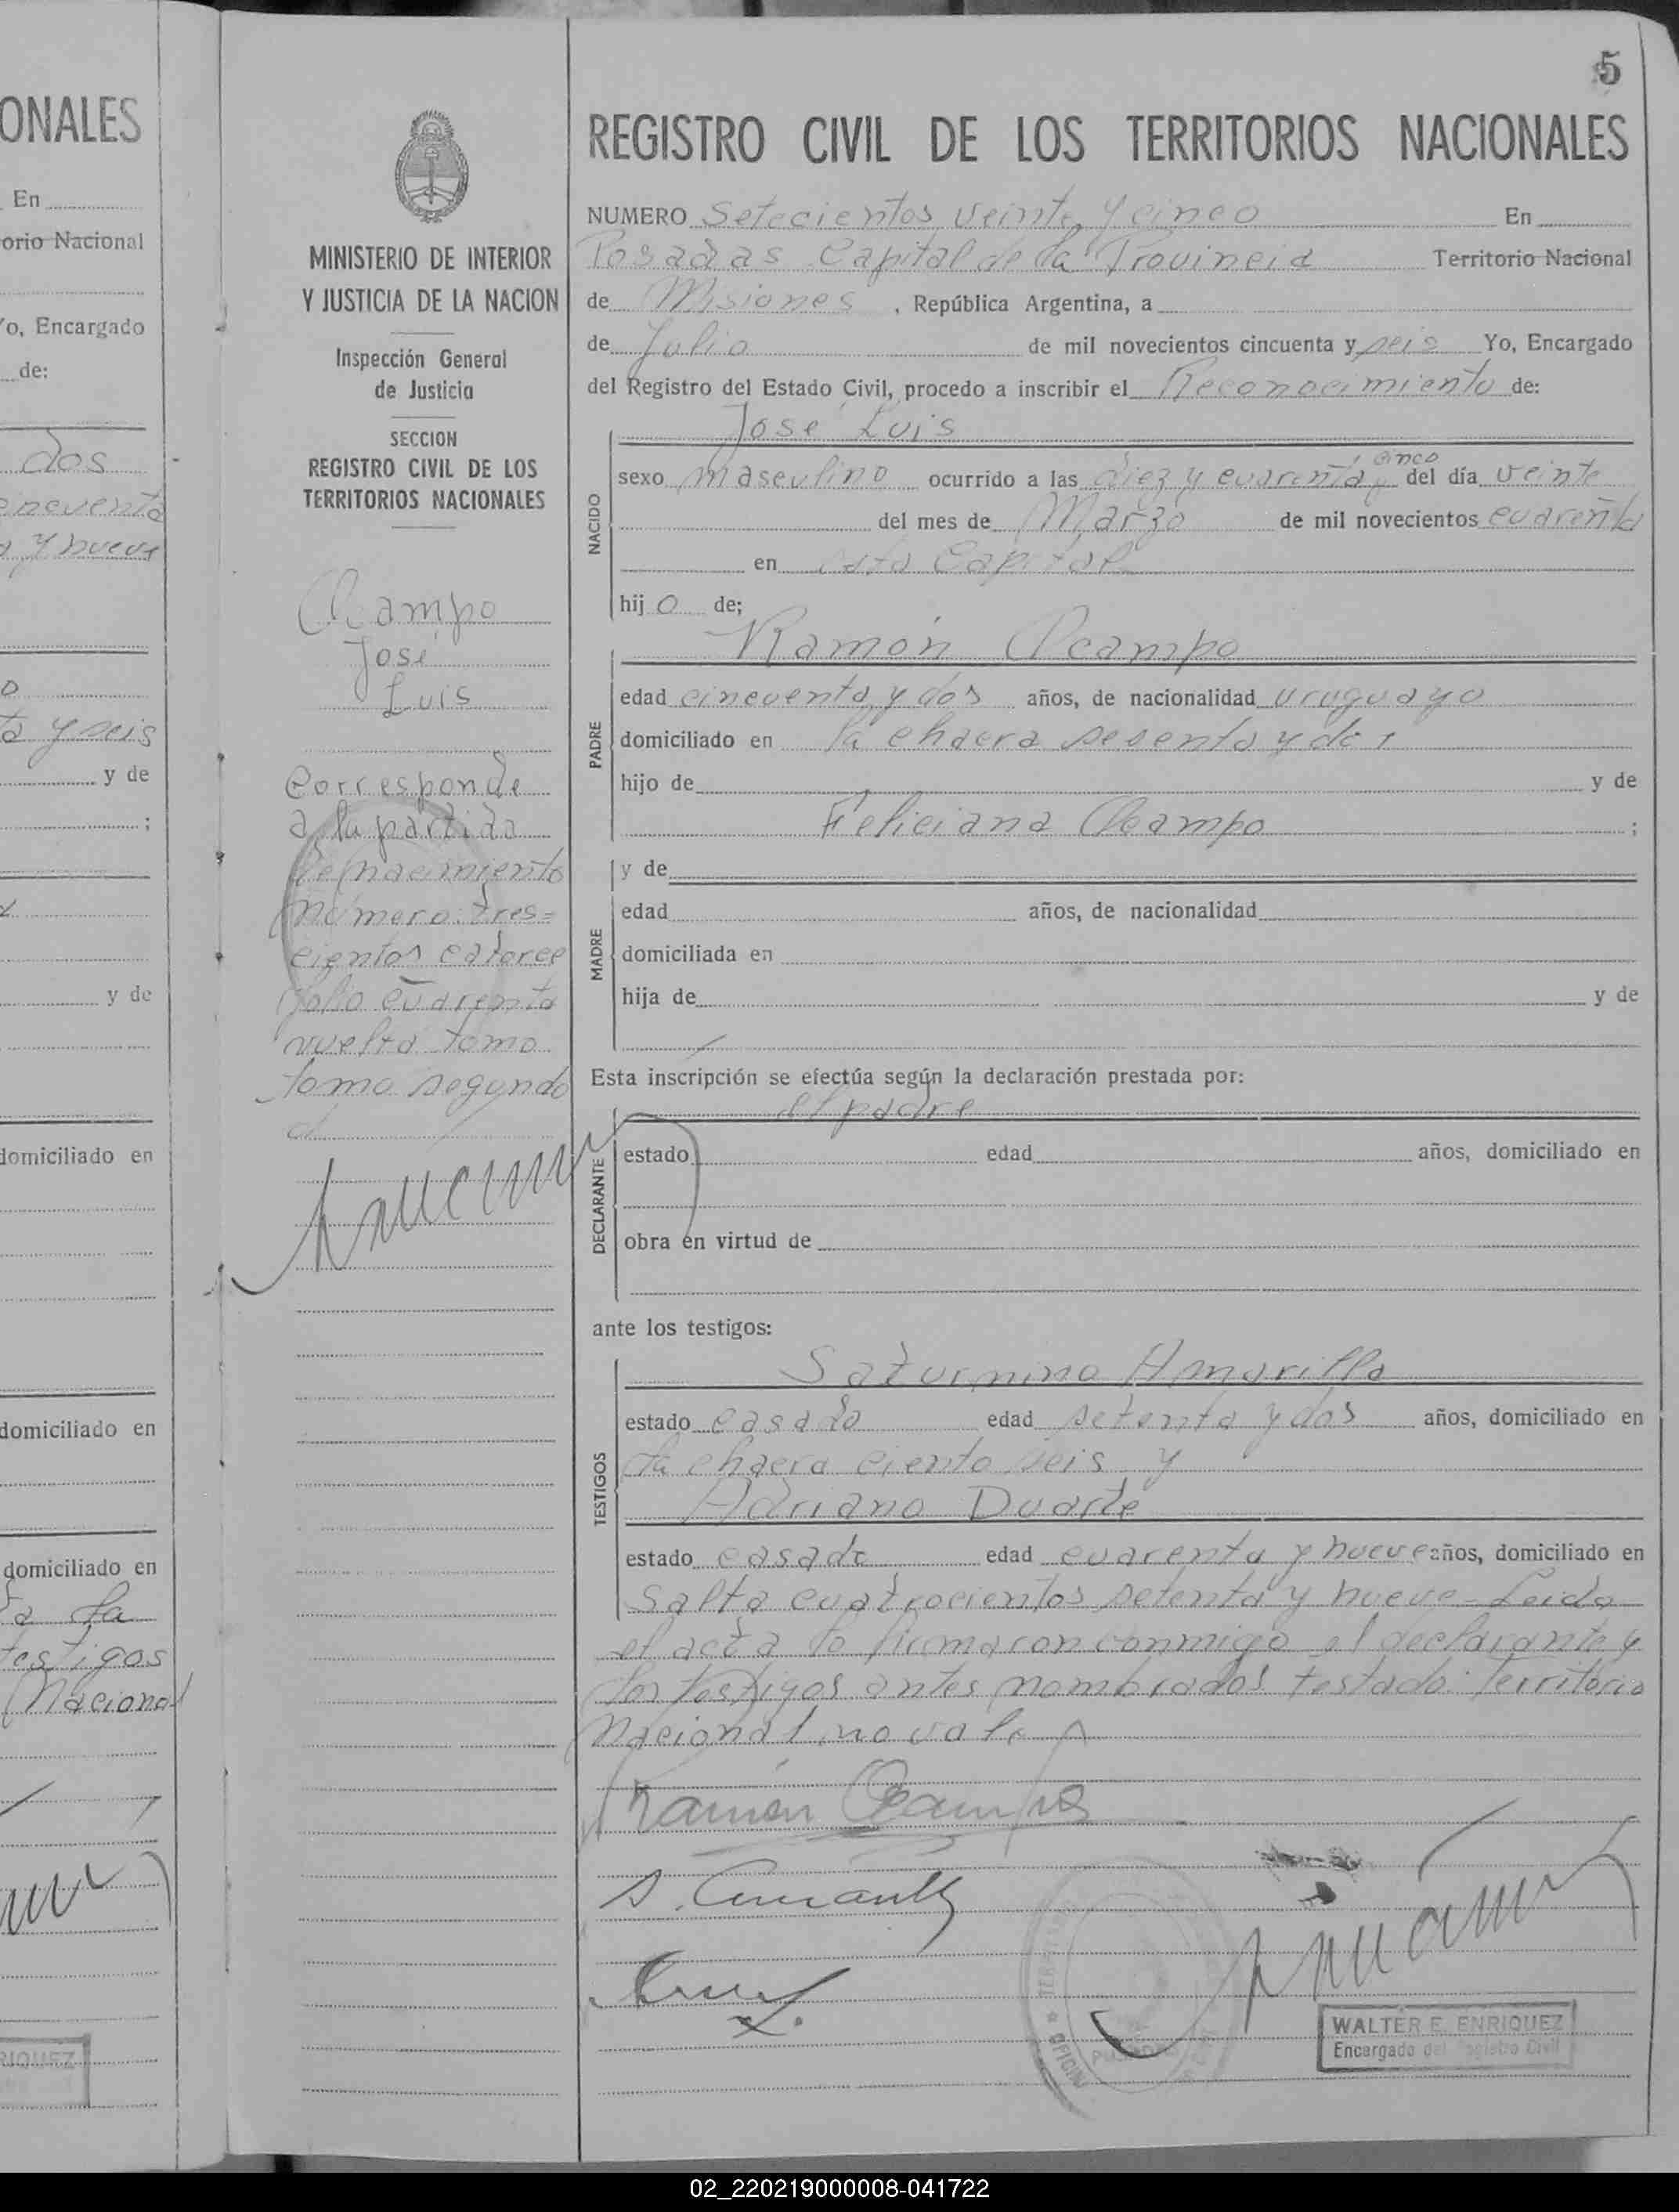 ONALES
En
orio Nacional
o, Encargado
de:
dos
cincuenta
y nueve
y seis
y de
;
y de
domiciliado en
domiciliado en
domiciliado en
la
testigos
Nacional
RIQUEZ
MINISTERIO DE INTERIOR
Y JUSTICIA DE LA NACION
Inspección General
de Justicia
SECCION
REGISTRO CIVIL DE LOS
TERRITORIOS NACIONALES
Ocampo
José
Luis
Corresponde
a la partida
de nacimiento
número: tres=
cientos catorce
folio cuarenta
vuelta tomo
tomo segundo
5
REGISTRO CIVIL DE LOS TERRITORIOS NACIONALES
NUMERO Setecientos veinte y cinco En
Posadas Capital de la Provincia Territorio Nacional
de Misiones, República Argentina, a
de Julio de mil novecientos cincuenta y seis Yo, Encargado
del Registro del Estado Civil, procedo a inscribir el Reconocimiento de:
José Luis
NACIDO
sexo masculino ocurrido a las diez y cuarenta y cinco del día veinte
del mes de Marzo de mil novecientos cuarenta
en esta Capital
hijo de;
Ramón Ocampo
PADRE
edad cincuenta y dos años, de nacionalidad uruguayo
domiciliado en la chacra sesenta y dos
hijo de y de
Feliciana Ocampo ;
y de
MADRE
edad años, de nacionalidad
domiciliada en
hija de y de
Esta inscripción se efectúa según la declaración prestada por:
el padre
DECLARANTE
estado edad años, domiciliado en
obra en virtud de
ante los testigos:
Saturnino Amarilla
TESTIGOS
estado casado edad setenta y dos años, domiciliado en
la chacra ciento seis y
Adriano Duarte
estado casado edad cuarenta y nueve años, domiciliado en
Salta cuatrocientos setenta y nueve - Leida
el acta lo firmaron conmigo el declarante y
los testigos antes nombrados testado: Territorio
Nacional no vale
Ramón Ocampo
WALTER E. ENRIQUEZ
Encargado del Registro Civil
02_220219000008-041722